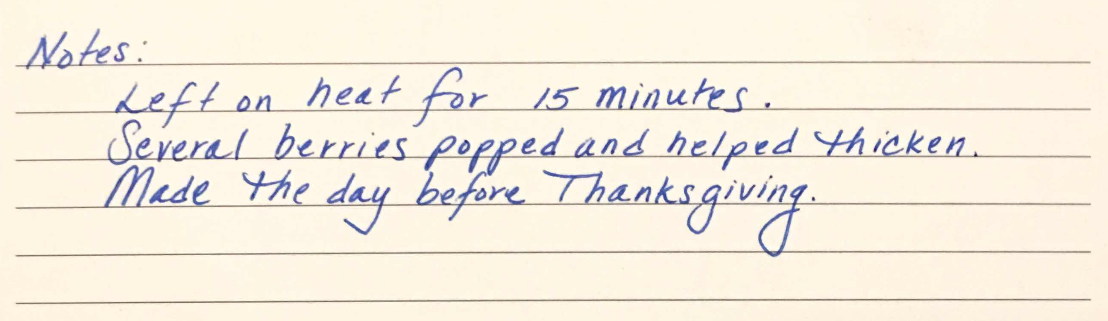 Notes:
Left on heat for 15 minutes.
Several berries popped and helped thicken.
Made the day before Thanksgiving.